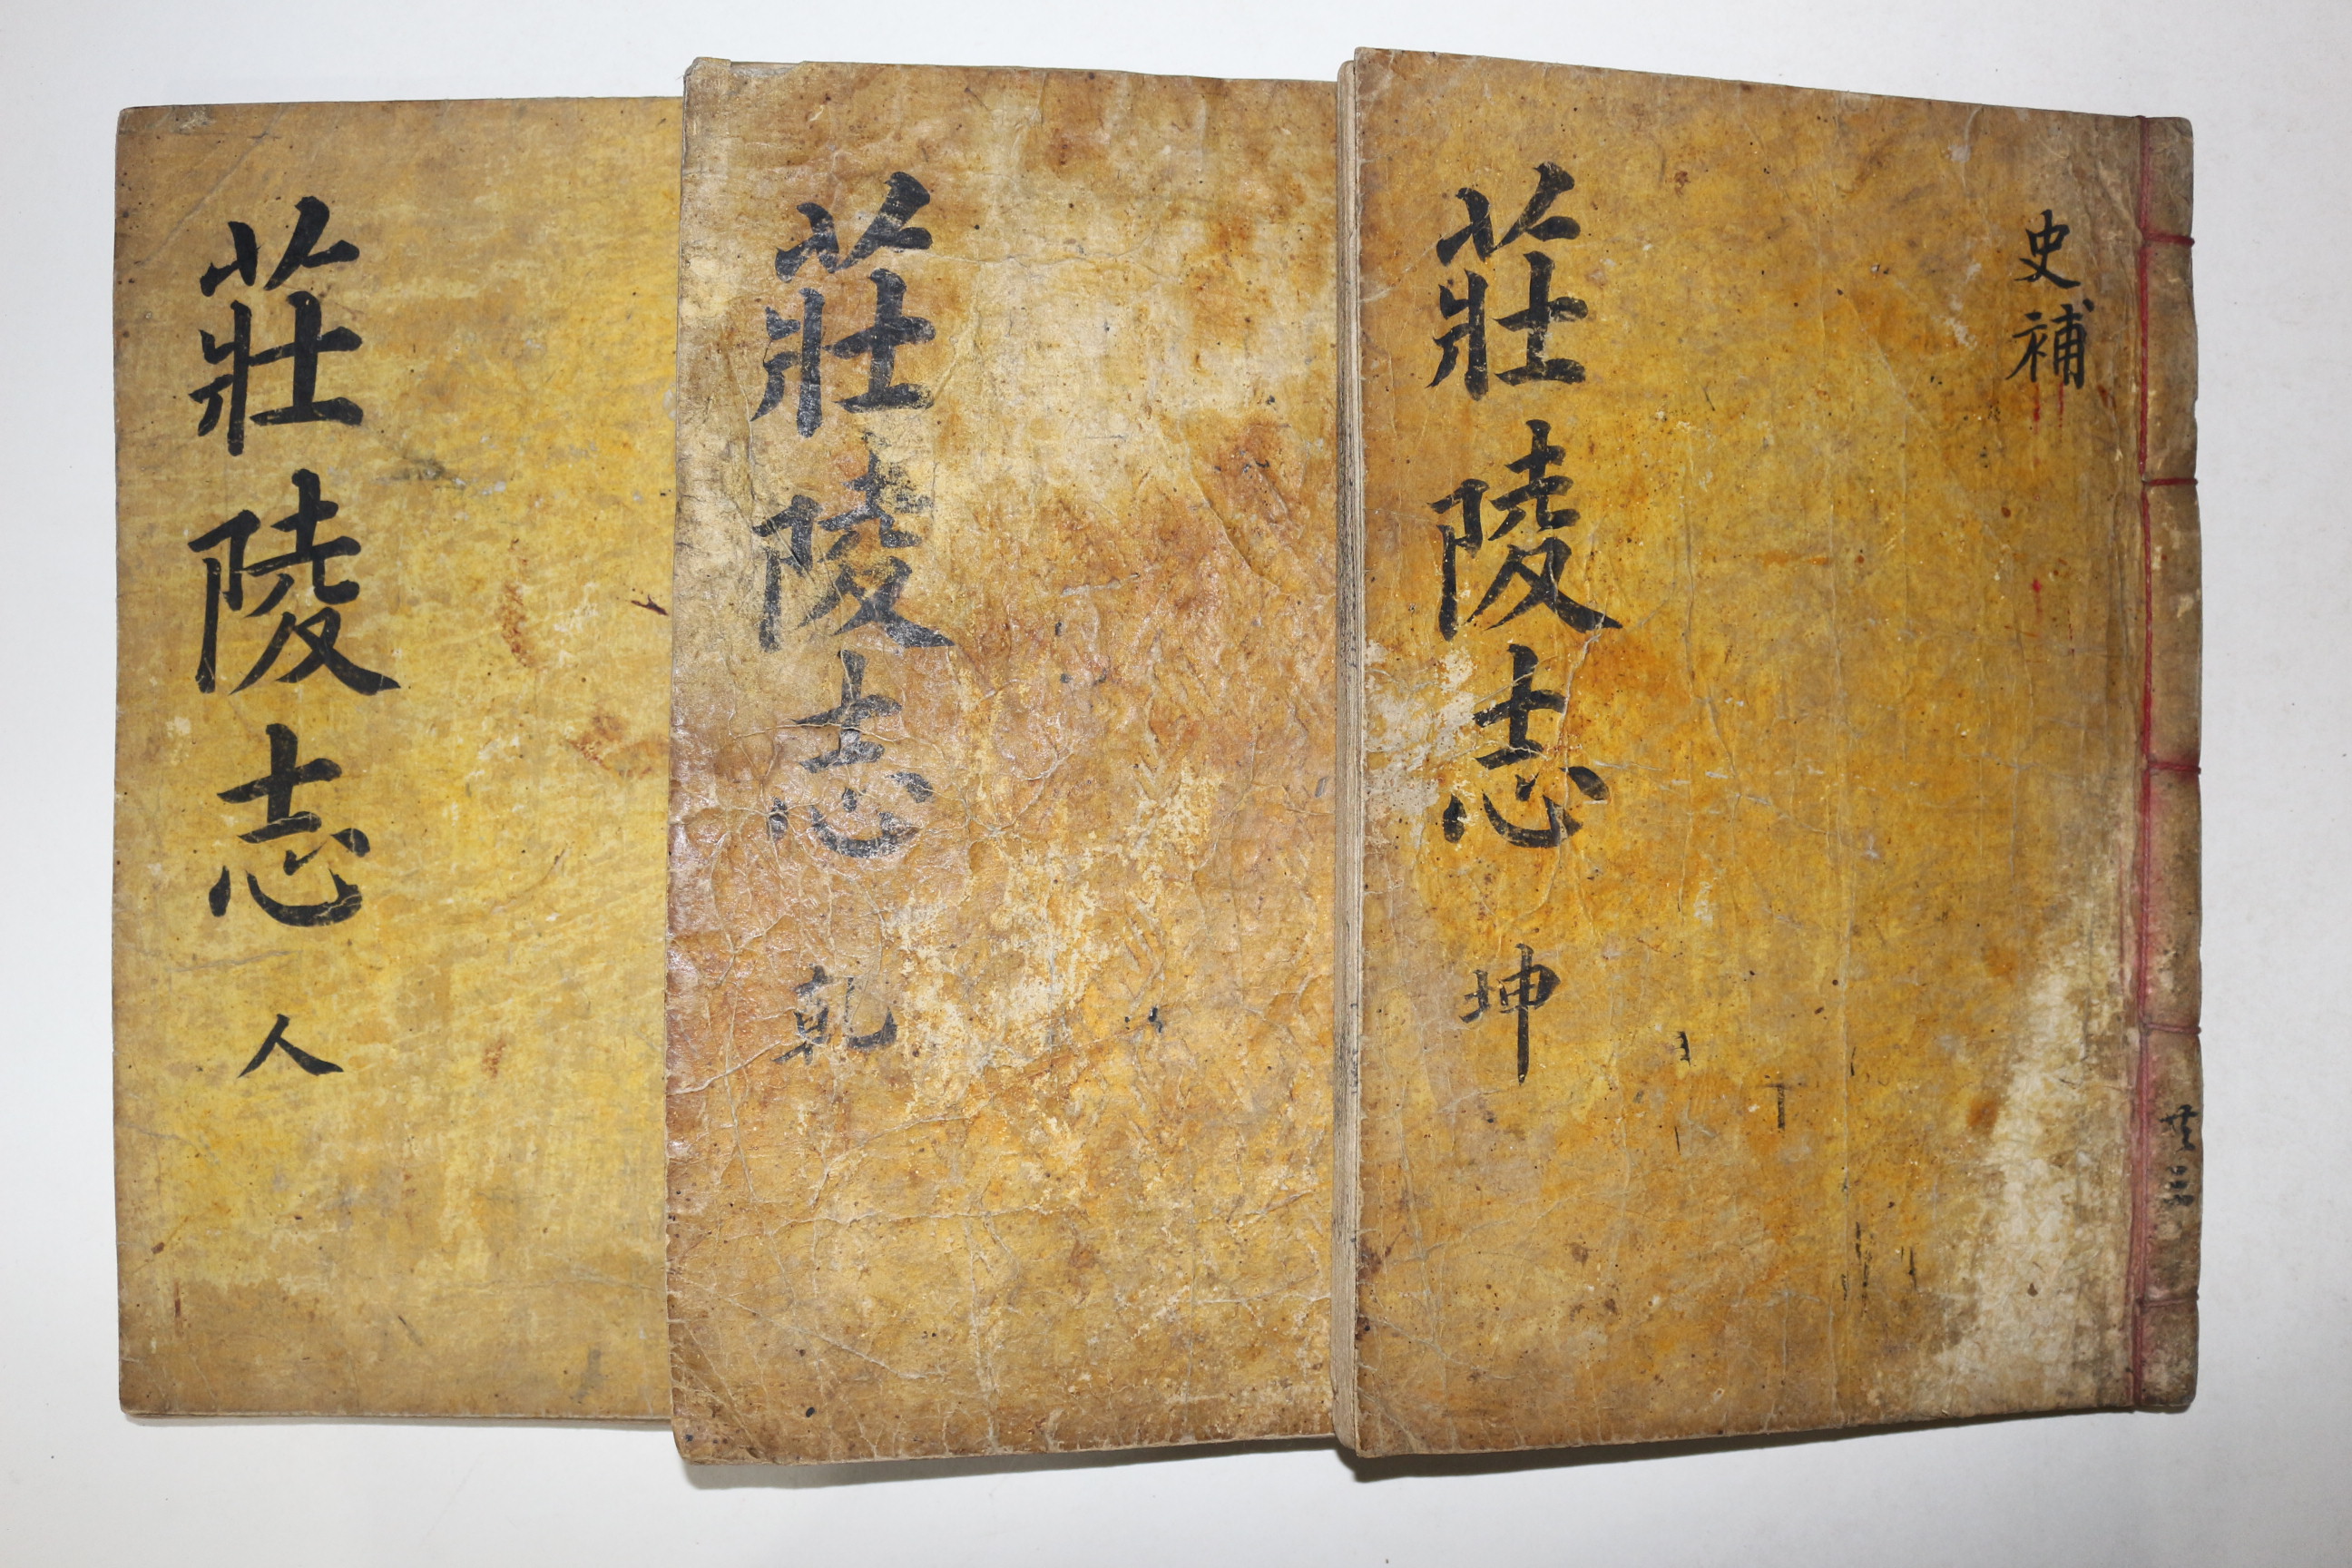 莊陵志 人
莊陵志 乾
史補
莊陵志 坤
共三